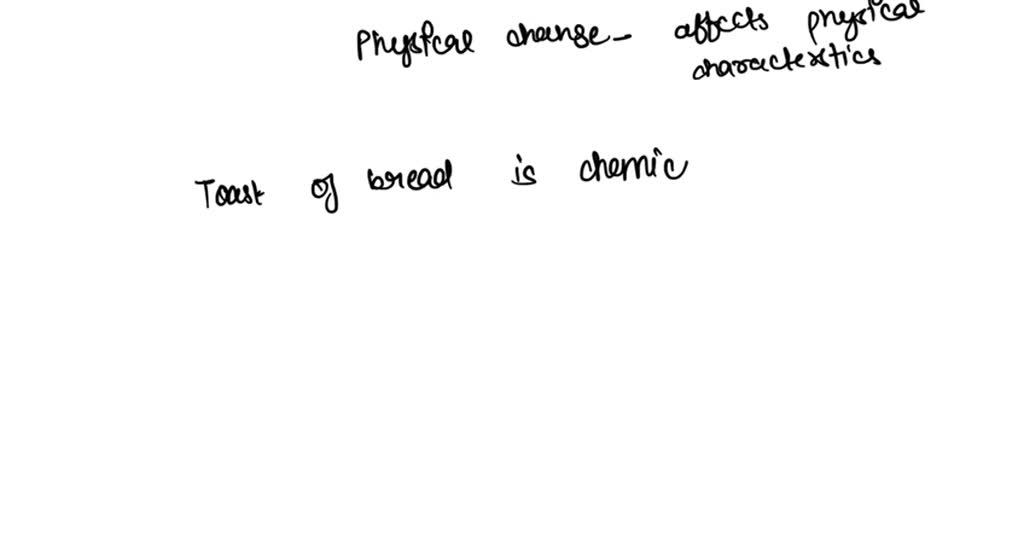 Physical change - affects physical
characteristics
Toast of bread is chemic